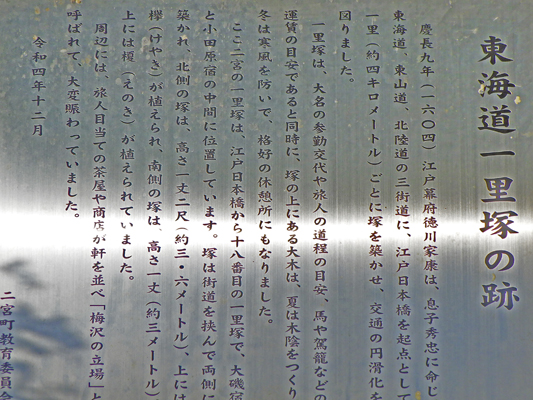 東海道一里塚の跡
慶長九年（一六〇四）江戸幕府徳川家康は、息子秀忠に命じ
東海道、東山道、北陸道の三街道に、江戸日本橋を起点として
一里（約四キロメートル）ごとに塚を築かせ、交通の円滑化を
図りました。
一里塚は、大名の参勤交代や旅人の道程の目安、馬や駕籠などの
運賃の目安であると同時に、塚の上にある大木は、夏は木陰をつくり
冬は寒風を防いで、格好の休憩所にもなりました。
ここ二宮の一里塚は、江戸日本橋から十八番目の一里塚で、大磯宿
と小田原宿の中間に位置しています。塚は街道を挟んで両側に
築かれ、北側の塚は、高さ一丈二尺（約三・六メートル）、上には
欅（けやき）が植えられ、南側の塚は、高さ一丈（約三メートル）
上には榎（えのき）が植えられていました。
周辺には、旅人目当ての茶屋や商店が軒を並べ「梅沢の立場」と
呼ばれて、大変賑わっていました。
令和四年十二月
二宮町教育委員会